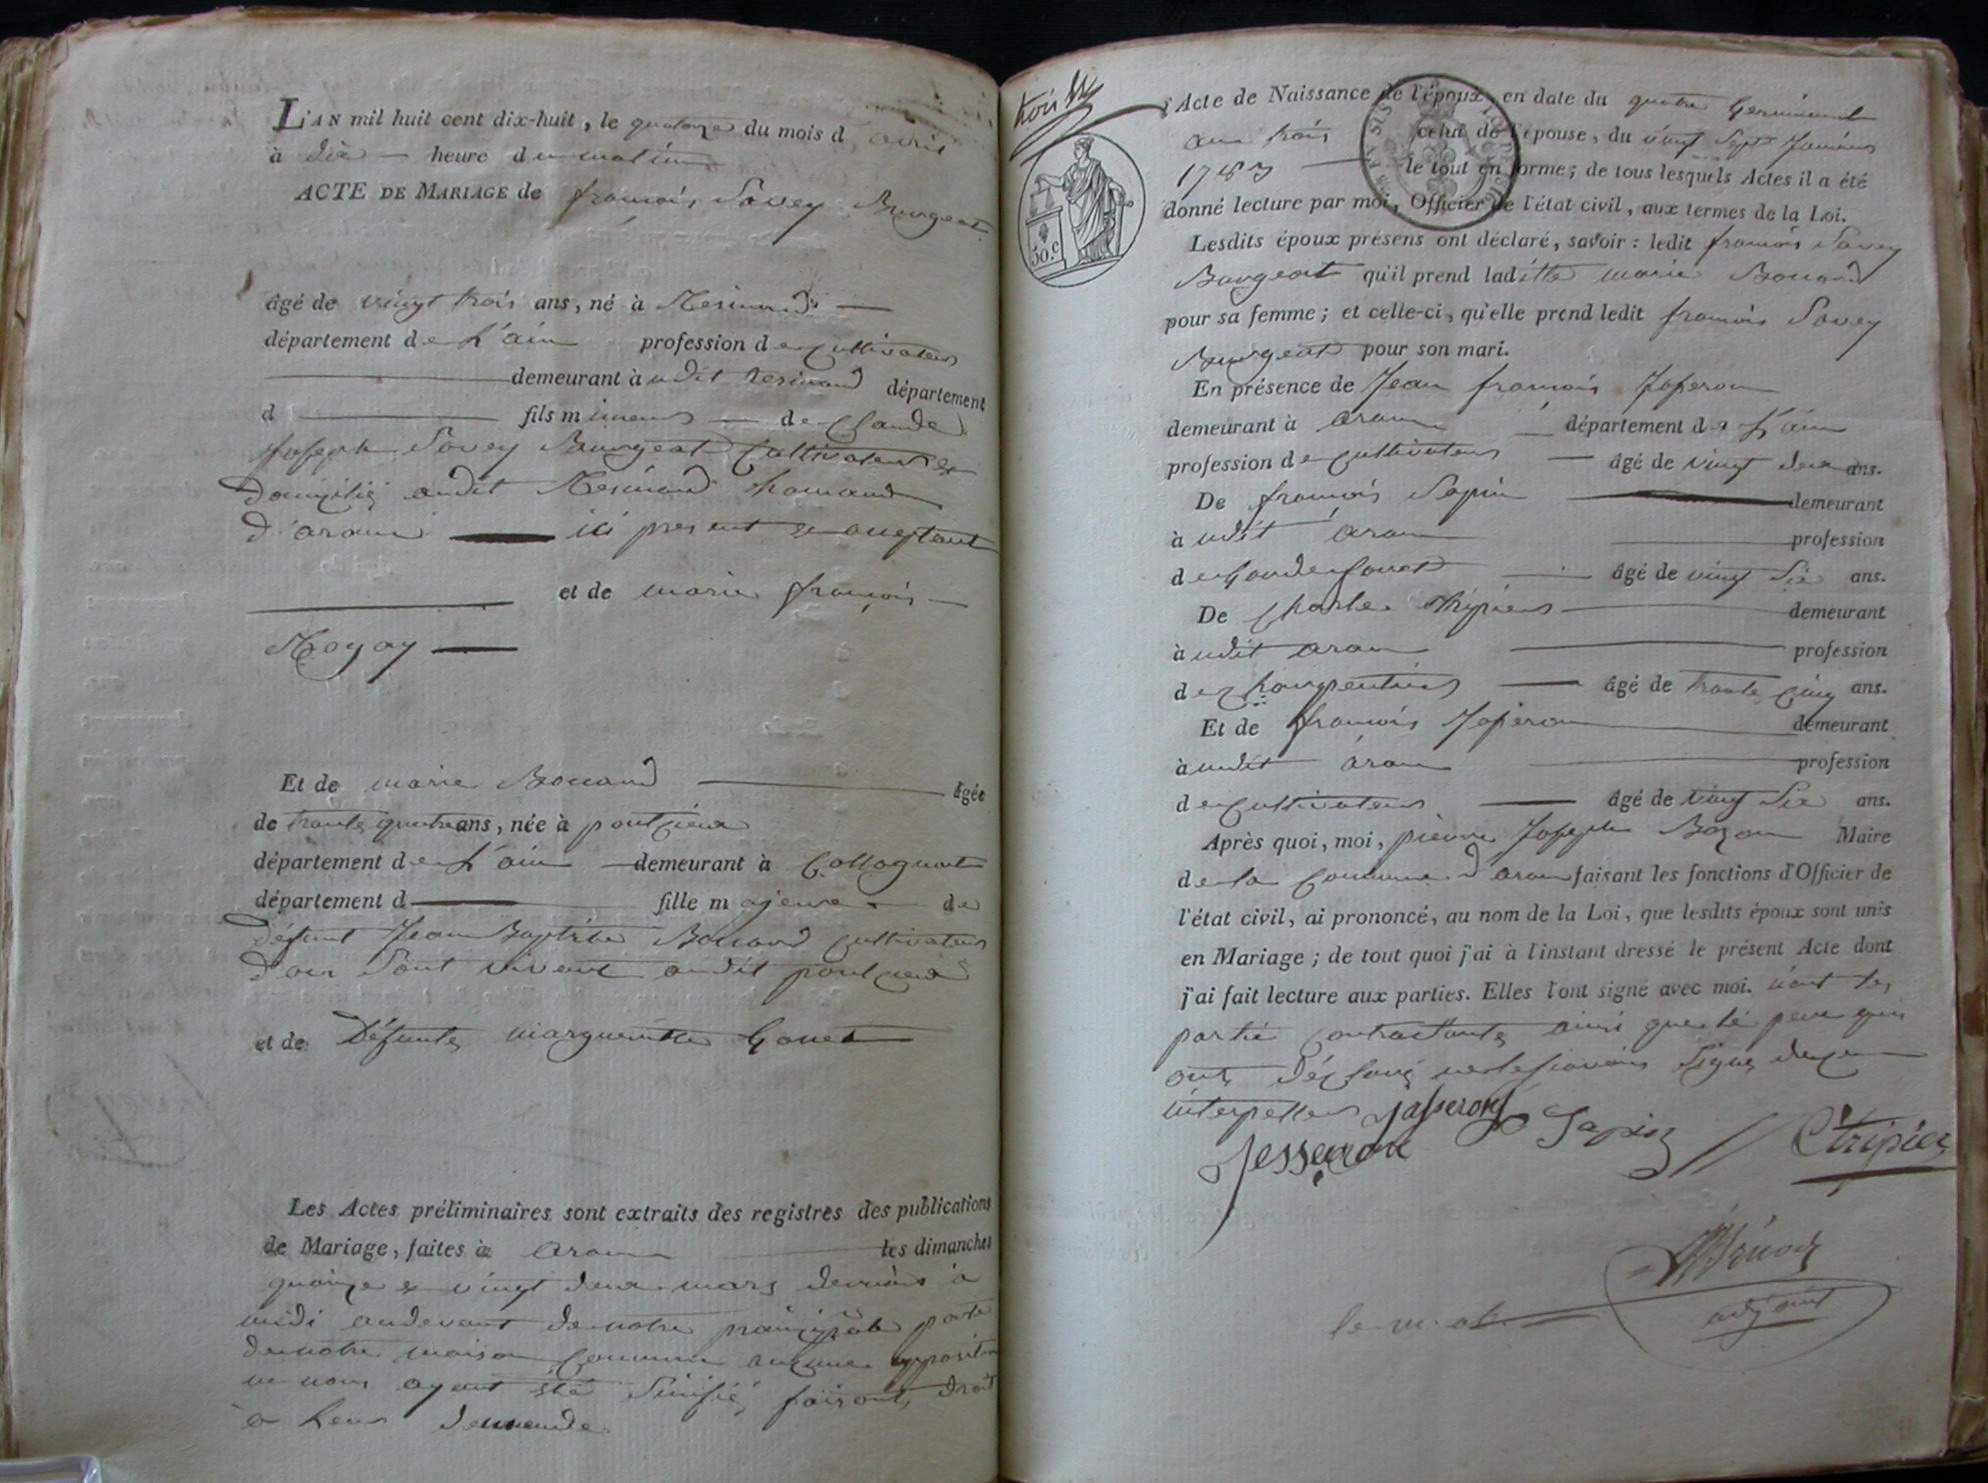 L'AN mil huit cent dix-huit, le quatorze du mois d'avril
à dix heure du matin
ACTE DE MARIAGE de françois Savey Burgeat
âgé de vingt trois ans, né à Resinand
département de L'ain profession de cultivateur
demeurant à udit Resinand département
d fils mineur de Claude
Joseph Savey Burgeat Cultivateur et
domicilié audit Resinand hameau
d'aranc ici present et aceptant
et de marie françois
Et de marie Bouand âgée
de trante quatre ans, née à
département de L'ain demeurant à Collognat
département d fille majeure de
défunt Jean Baptiste Bouand cultivateur
de son vivant audit
et de Défunte margueritte
Les Actes préliminaires sont extraits des registres des publications
de Mariage, faites à aranc les dimanches
quainze et vingt deux mars derniers à
midi audevant de notre prainsipale porte
de notre maison Commune aucune opposition
ne nous ayant été sinifié faisant droit
a leur demande
trois
50.c
l'Acte de Naissance de l'époux, en date du quatre Germinal
an trois celui de l'épouse, du vingt Sept Janviers
1783 le tout en forme; de tous lesquels Actes il a été
donné lecture par moi, Officier de l'état civil, aux termes de la Loi.
Lesdits époux présens ont déclaré, savoir: ledit françois Savey
Burgeat qu'il prend laditte marie Bouand
pour sa femme; et celle-ci, qu'elle prend ledit françois Savey
Burgeat pour son mari.
En présence de Jean françois Josseron
demeurant à aranc département de L'ain
profession de cultivateur âgé de vingt deux ans.
De françois Sapin demeurant
à udit aranc profession
de âgé de vingt Six ans.
De Charle tripiers demeurant
à udit aranc profession
de Charpentier âgé de trante cinq ans.
Et de françois Josseron demeurant
à udit aranc profession
de cultivateur âgé de vingt Six ans.
Après quoi, moi, pierre Joseph Bozon Maire
de la Commune d'aranc faisant les fonctions d'Officier de
l'état civil, ai prononcé, au nom de la Loi, que lesdits époux sont unis
en Mariage; de tout quoi j'ai à l'instant dressé le présent Acte dont
j'ai fait lecture aux parties. Elles l'ont signé avec moi.
partie Contractante ainsi que le pere qui
ont déclaré
Josseron
Josseron Sapin Ctripier
adjoint